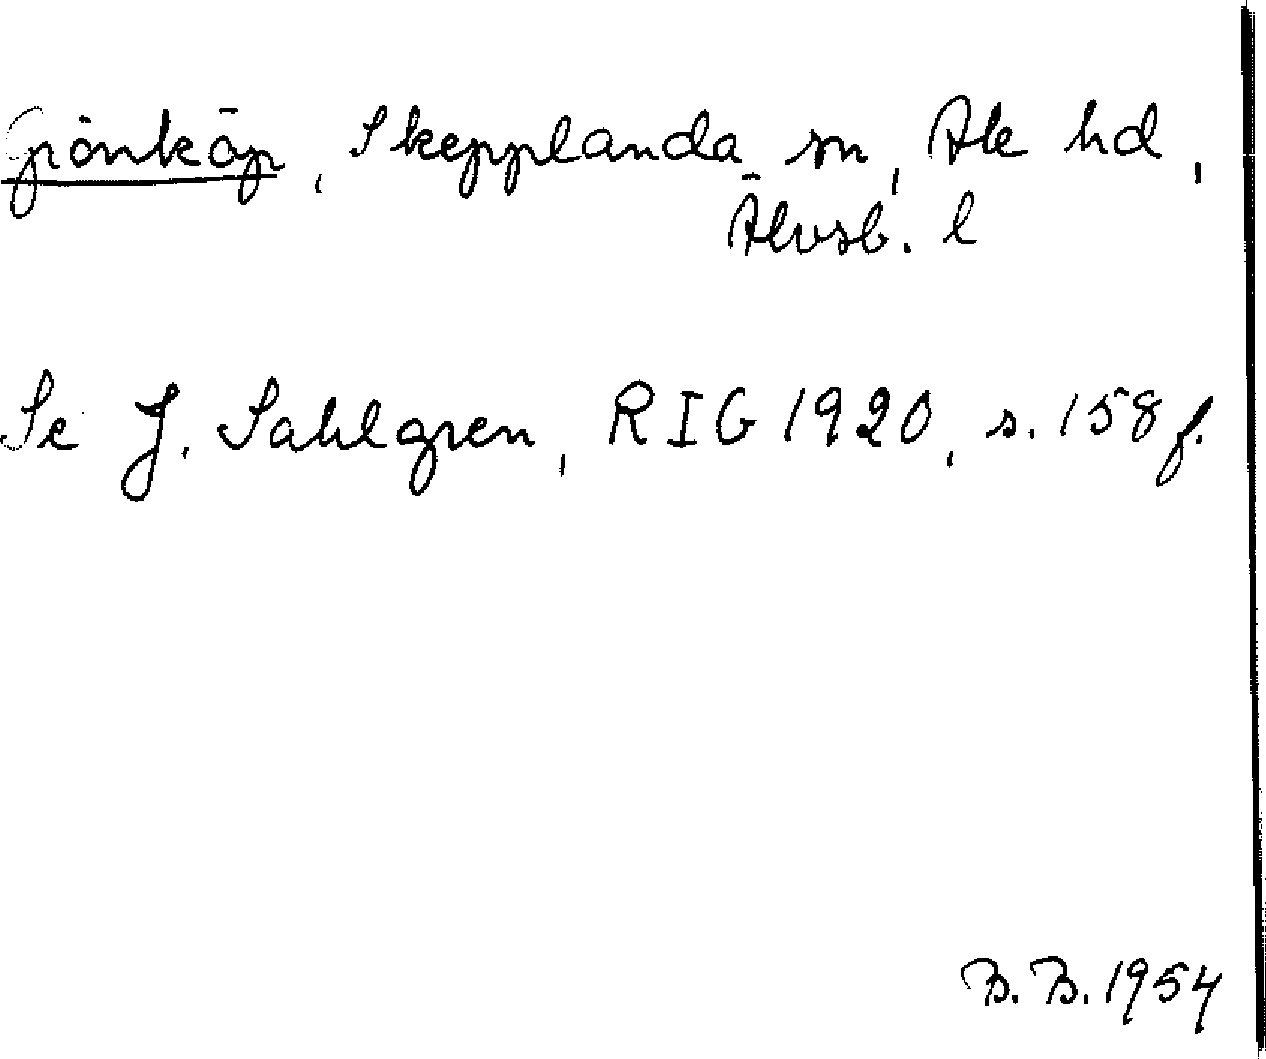 Grönköp, Skepplanda sn, Ale hd,
Älvsb. l
Se J. Sahlgren, RIG 1920, s. 158 f.
B. B. 1954